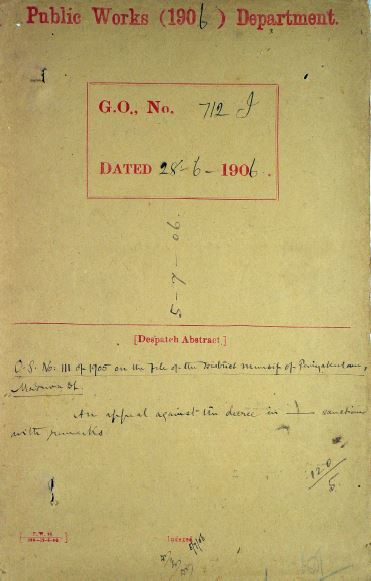 Public Works (1906) Department.
G.O., No. 712 I
DATED 28-6-1906.
5-7-06.
[Despatch Abstract.]
O.S. No. 111 of 1905 on the file of the District Munsif of Periyakulam,
Madura Dt.
An appeal against the decree in sanctions
with remarks.
120/5.
Indexed